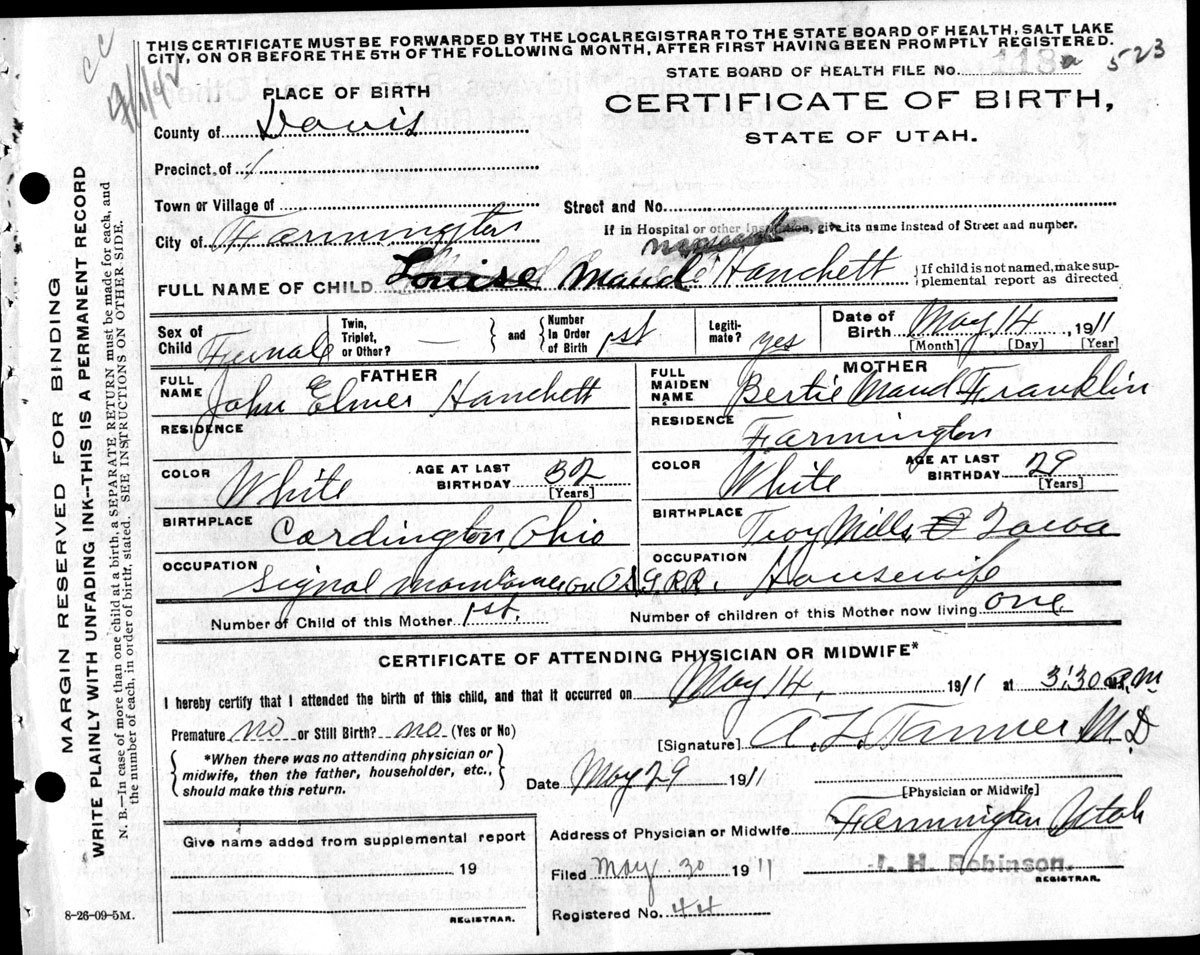 THIS CERTIFICATE MUST BE FORWARDED BY THE LOCAL REGISTRAR TO THE STATE BOARD OF HEALTH, SALT LAKE
CITY, ON OR BEFORE THE 5TH OF THE FOLLOWING MONTH, AFTER FIRST HAVING BEEN PROMPTLY REGISTERED.
STATE BOARD OF HEALTH FILE No. 118a 523
PLACE OF BIRTH
CERTIFICATE OF BIRTH,
STATE OF UTAH.
County of Davis
Precinct of 1
Town or Village of
Street and No.
City of Farmington
If in Hospital or other Institution, give its name instead of Street and number.
FULL NAME OF CHILD Louise Maude Hanchett
If child is not named, make sup-
plemental report as directed
Sex of Child Female
Twin, Triplet, or Other? —
and
Number In Order of Birth 1st
Legiti-mate? yes
Date of Birth May 14 1911
[Month] [Day] [Year]
FATHER
FULL NAME John Elmer Hanchett
RESIDENCE
COLOR White AGE AT LAST BIRTHDAY 32 [Years]
BIRTHPLACE Cardington, Ohio
OCCUPATION Signal on O.S.L. R.R.
MOTHER
FULL MAIDEN NAME Bertie Maud Franklin
RESIDENCE Farmington
COLOR White AGE AT LAST BIRTHDAY 29 [Years]
BIRTHPLACE Troy Mills, Iowa
OCCUPATION Housewife
Number of Child of this Mother 1st. Number of children of this Mother now living one
CERTIFICATE OF ATTENDING PHYSICIAN OR MIDWIFE*
I hereby certify that I attended the birth of this child, and that it occurred on May 14, 1911 at 3:30 M
Premature no or Still Birth? no (Yes or No)
[Signature] A. Z. Tanner M.D
*When there was no attending physician or
midwife, then the father, householder, etc.,
should make this return.
Date May 29 1911
[Physician or Midwife]
Give name added from supplemental report
19
REGISTRAR.
Address of Physician or Midwife Farmington Utah
Filed May 30 1911
J. H. Robinson.
REGISTRAR.
Registered No. 44
8-26-09-5M.
MARGIN RESERVED FOR BINDING
WRITE PLAINLY WITH UNFADING INK--THIS IS A PERMANENT RECORD
N. B.—In case of more than one child at a birth, a SEPARATE RETURN must be made for each, and
the number of each, in order of birth, stated. SEE INSTRUCTIONS ON OTHER SIDE.